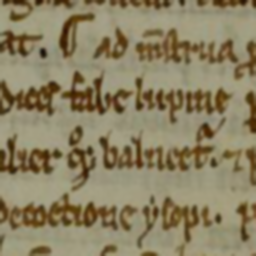 at. ¶ ad mēstrua
dices fabe lupine
alier qͦ balneet᷑. ⁊
decoctione ysopi. p